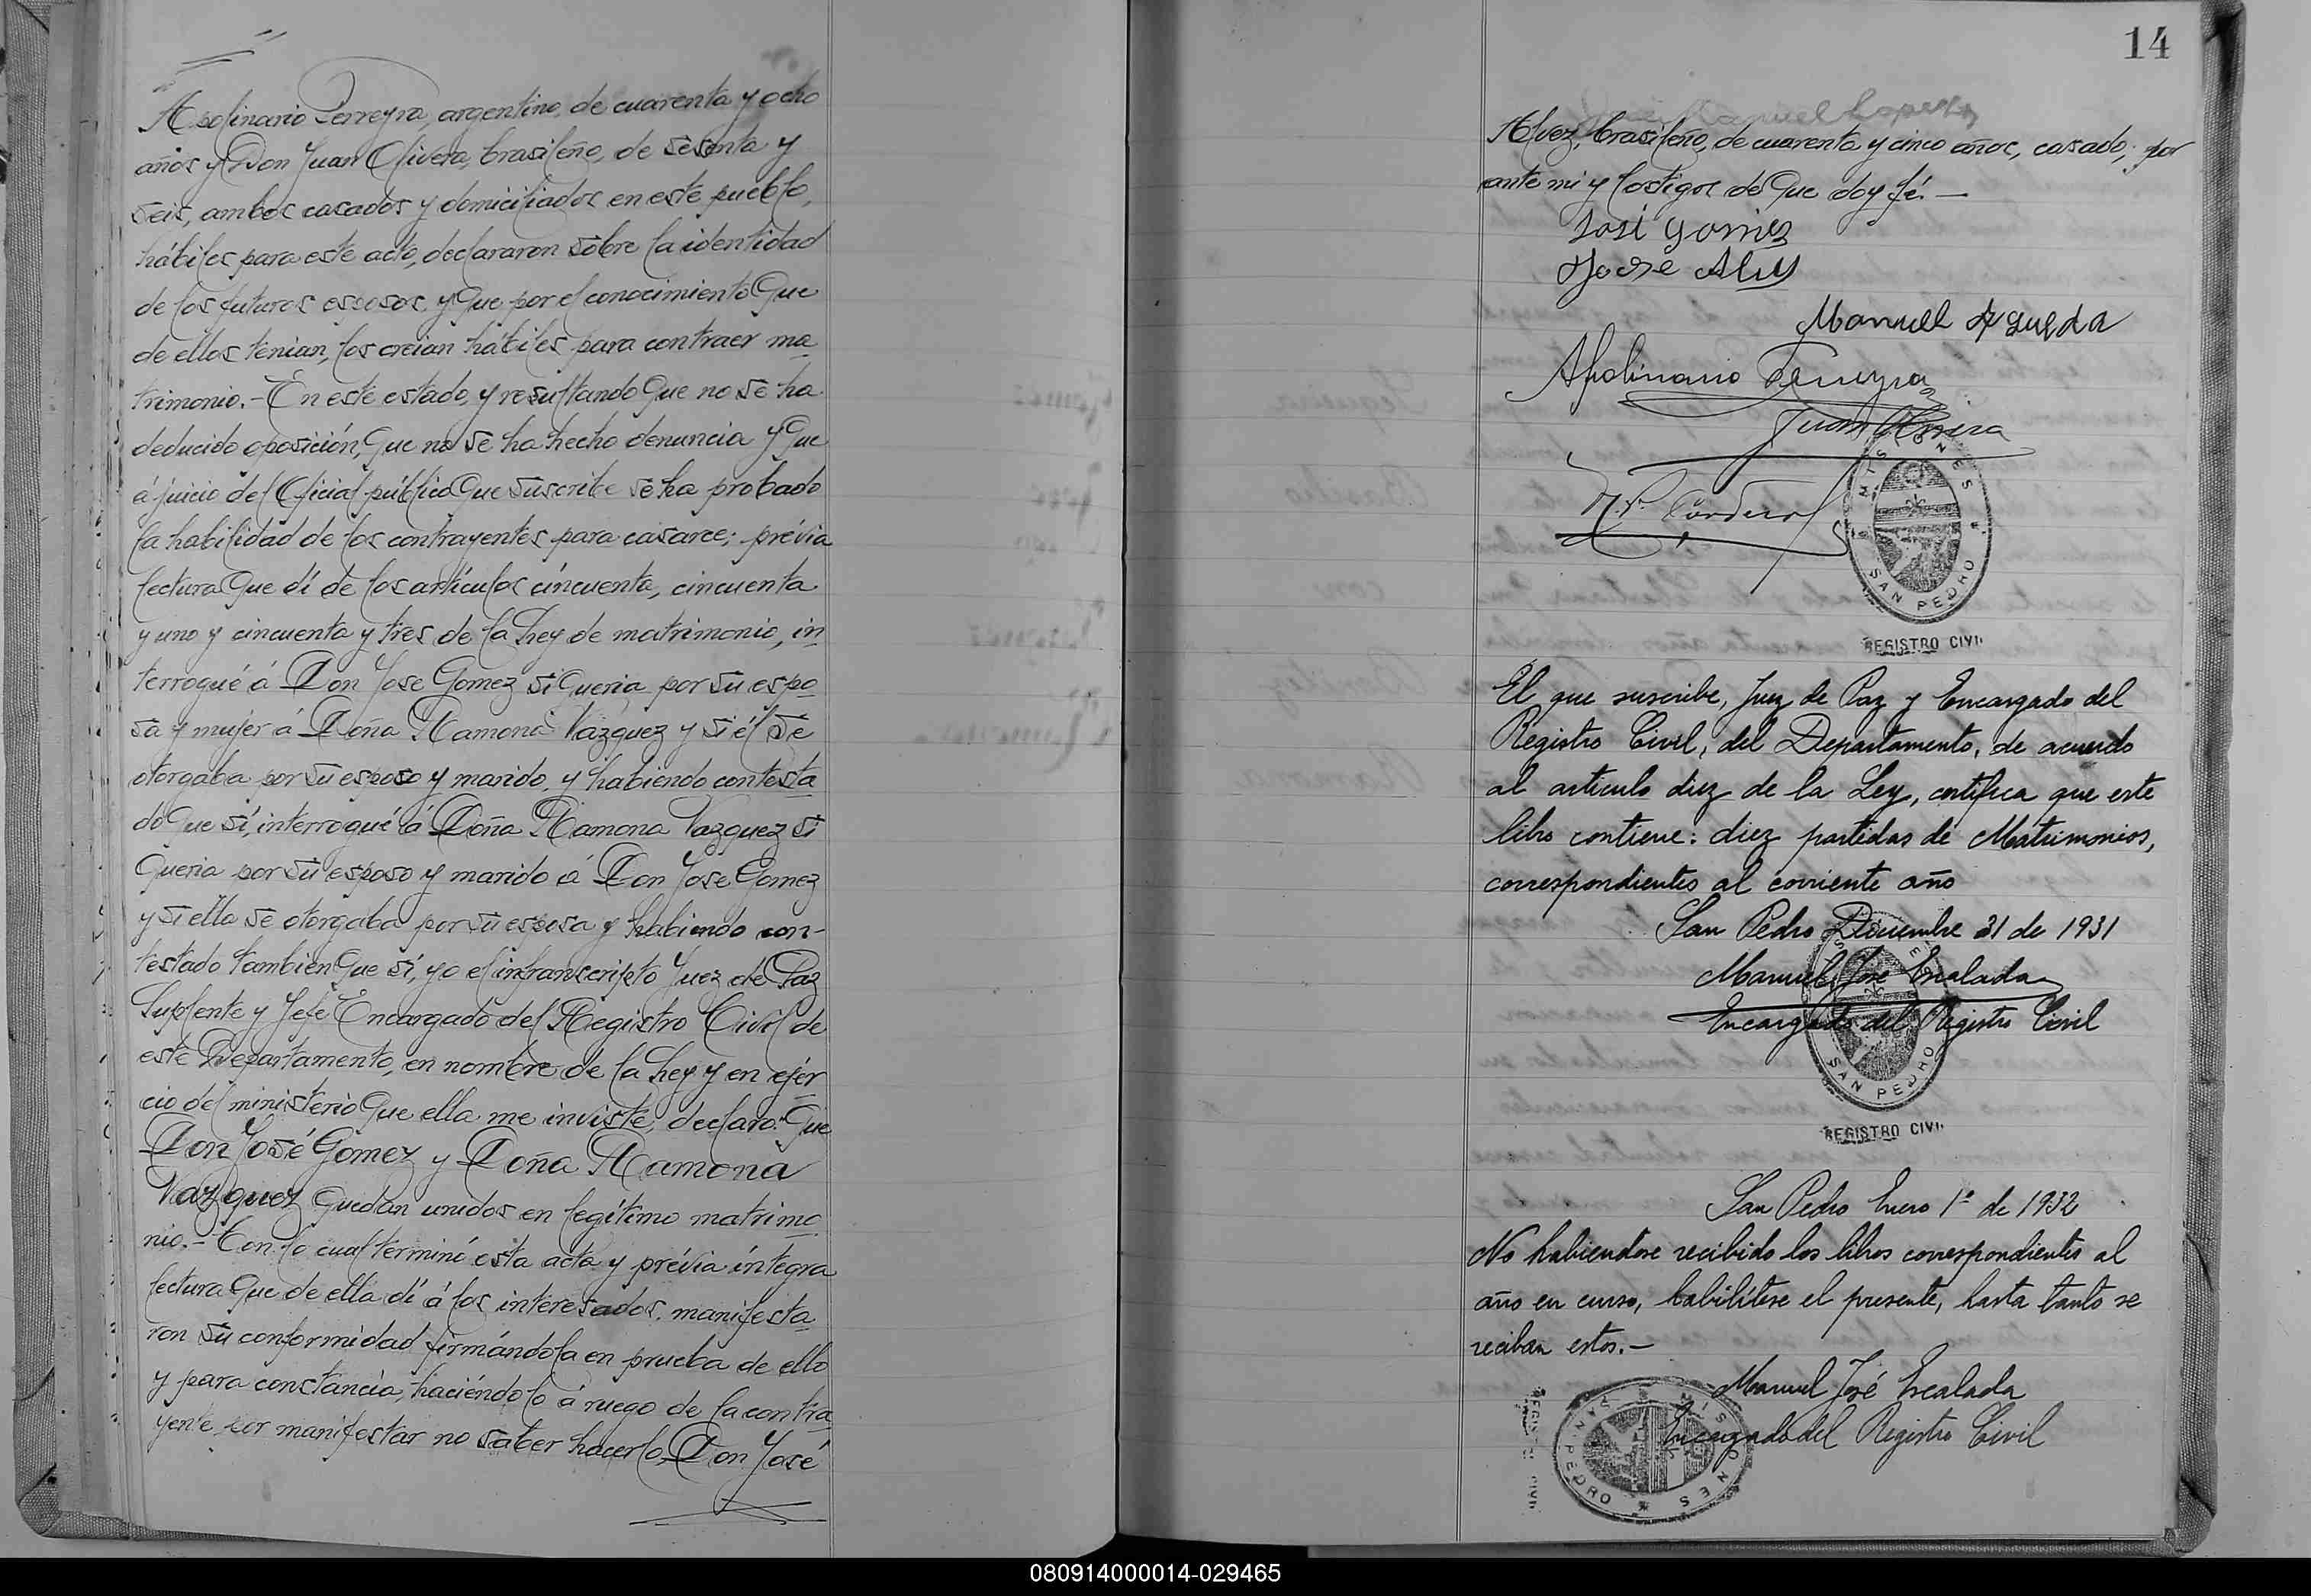 Apolinario Ferreyra, argentino, de cuarenta y ocho
años y Don Juan Olivera, brasileño, de sesenta y
seis, ambos casados y domiciliados en este pueblo,
hábiles para este acto, declararon sobre la identidad
de los futuros esposos y que por el conocimiento que
de ellos tenian, los creian hábiles para contraer ma
trimonio.- En este estado, y resultando que no se ha
deducido oposición, que no se ha hecho denuncia y que
á juicio del Oficial público que suscribe se ha probado
la habilidad de los contrayentes para casarce; prévia
lectura que dí de los artículos cincuenta, cincuenta
y uno y cincuenta y tres de la Ley de matrimonio, in
terrogué á Don Jose Gomez si queria por su espo
sa y mujer á Doña Ramona Vazquez y si él se
otorgaba por su esposo y marido, y habiendo contesta
do que sí, interrogué á Doña Ramona Vazquez si
queria por su esposo y marido á Don Jose Gomez
y si ella se otorgaba por su esposa y habiendo con-
testado tambien que sí, yo el infranscripto Juez de Paz
Suplente y Jefe Encargado del Registro Civil de
este Departamento, en nombre de la Ley y en ejér
cio del ministerio que ella me inviste, declaro: Que
Don José Gomez y Doña Ramona
Vazquez quedan unidos en legítimo matrimo
nio.- Con lo cual terminé esta acta y prévia íntegra
lectura que de ella dí á los interesados, manifesta
ron su conformidad firmándola en prueba de ello
y para constancia, haciéndolo á ruego de la contra
yente por manifestar no saber hacerlo, Don José
14
Alvez, brasileño, de cuarenta y cinco años, casado; por
ante mi y testigos de que doy fé.-
José Gomez
Jose Alves
Manuel Agueda
Apolinario Ferreyra
Juan Olivera
MISIONES
SAN PEDRO
REGISTRO CIVIL
El que suscribe, Juez de Paz y Encargado del
Registro Civil, del Departamento, de acuerdo
al articulo diez de la Ley, certifica que este
libro contiene: diez partidas de Matrimonios,
correspondientes al corriente año
San Pedro Diciembre 31 de 1931
Manuel José Encalada
Encargado del Registro Civil
SAN PEDRO
REGISTRO CIVIL
San Pedro Enero 1º de 1932
No habiendose recibido los libros correspondientes al
año en curso, habilítese el presente, hasta tanto se
reciban estos.-
Manuel José Encalada
Encargado del Registro Civil
MISIONES
SAN PEDRO
080914000014-029465